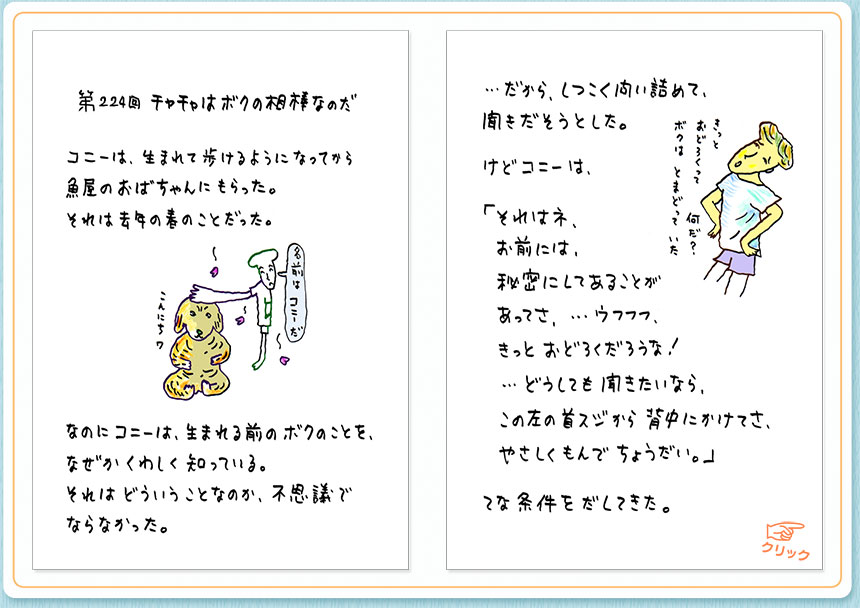 第224回 チャチャはボクの相棒なのだ
コニーは、生まれて歩けるようになってから
魚屋のおばちゃんにもらった。
それは去年の春のことだった。
名前は コニーだ
こんにちワ
なのに コニーは、生まれる前の ボクのことを、
なぜか くわしく 知っている。
それは どういう ことなのか、不思議で
ならなかった。
…だから、しつこく問い詰めて、
聞きだそうとした。
きっと
おどろくって 何だ?
ボクは とまどって いた
けどコニーは、
「それはネ、
お前には、
秘密にしてあることが
あってさ、…ウフフフ、
きっと おどろくだろうな!
…どうしても 聞きたいなら、
この左の首スジから 背中にかけてさ、
やさしくもんで ちょうだい。」
てな条件をだしてきた。
クリック